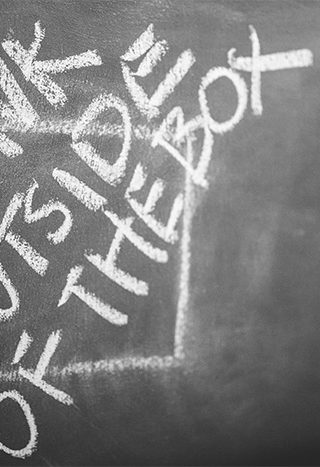 NK
UTSIDE
OF THE BOX